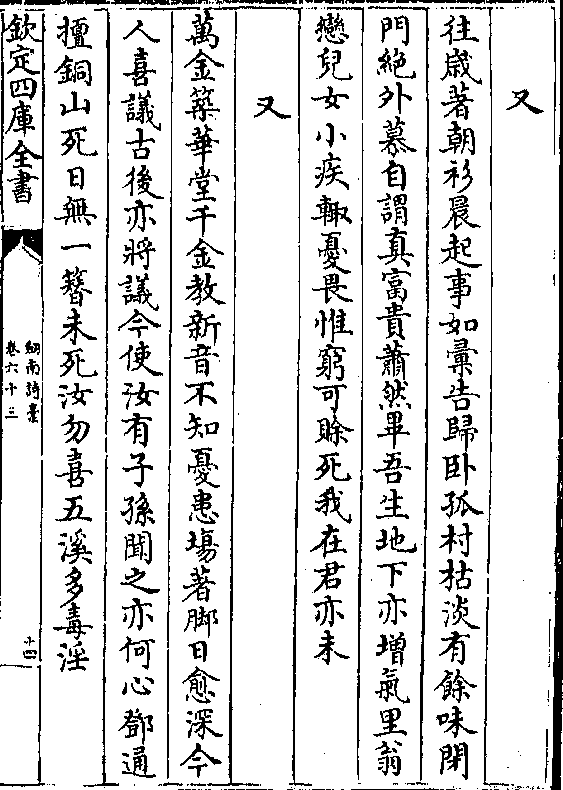 又
往歲著朝衫晨起事如彚告歸卧孤村枯淡有餘味閉
門絶外慕自謂真富貴蕭然畢吾生地下亦增氣里翁
戀兒女小疾輙憂畏惟窮可賒死我在君亦未
又
萬金築華堂千金教新音不知憂患場著脚日愈深今
人喜議古後亦將議今使汝有子孫聞之亦何心鄧通
擅銅山死日無一簮未死汝勿喜五溪多毒淫
欽定四庫全書
劒南詩藁
卷六十三
十四